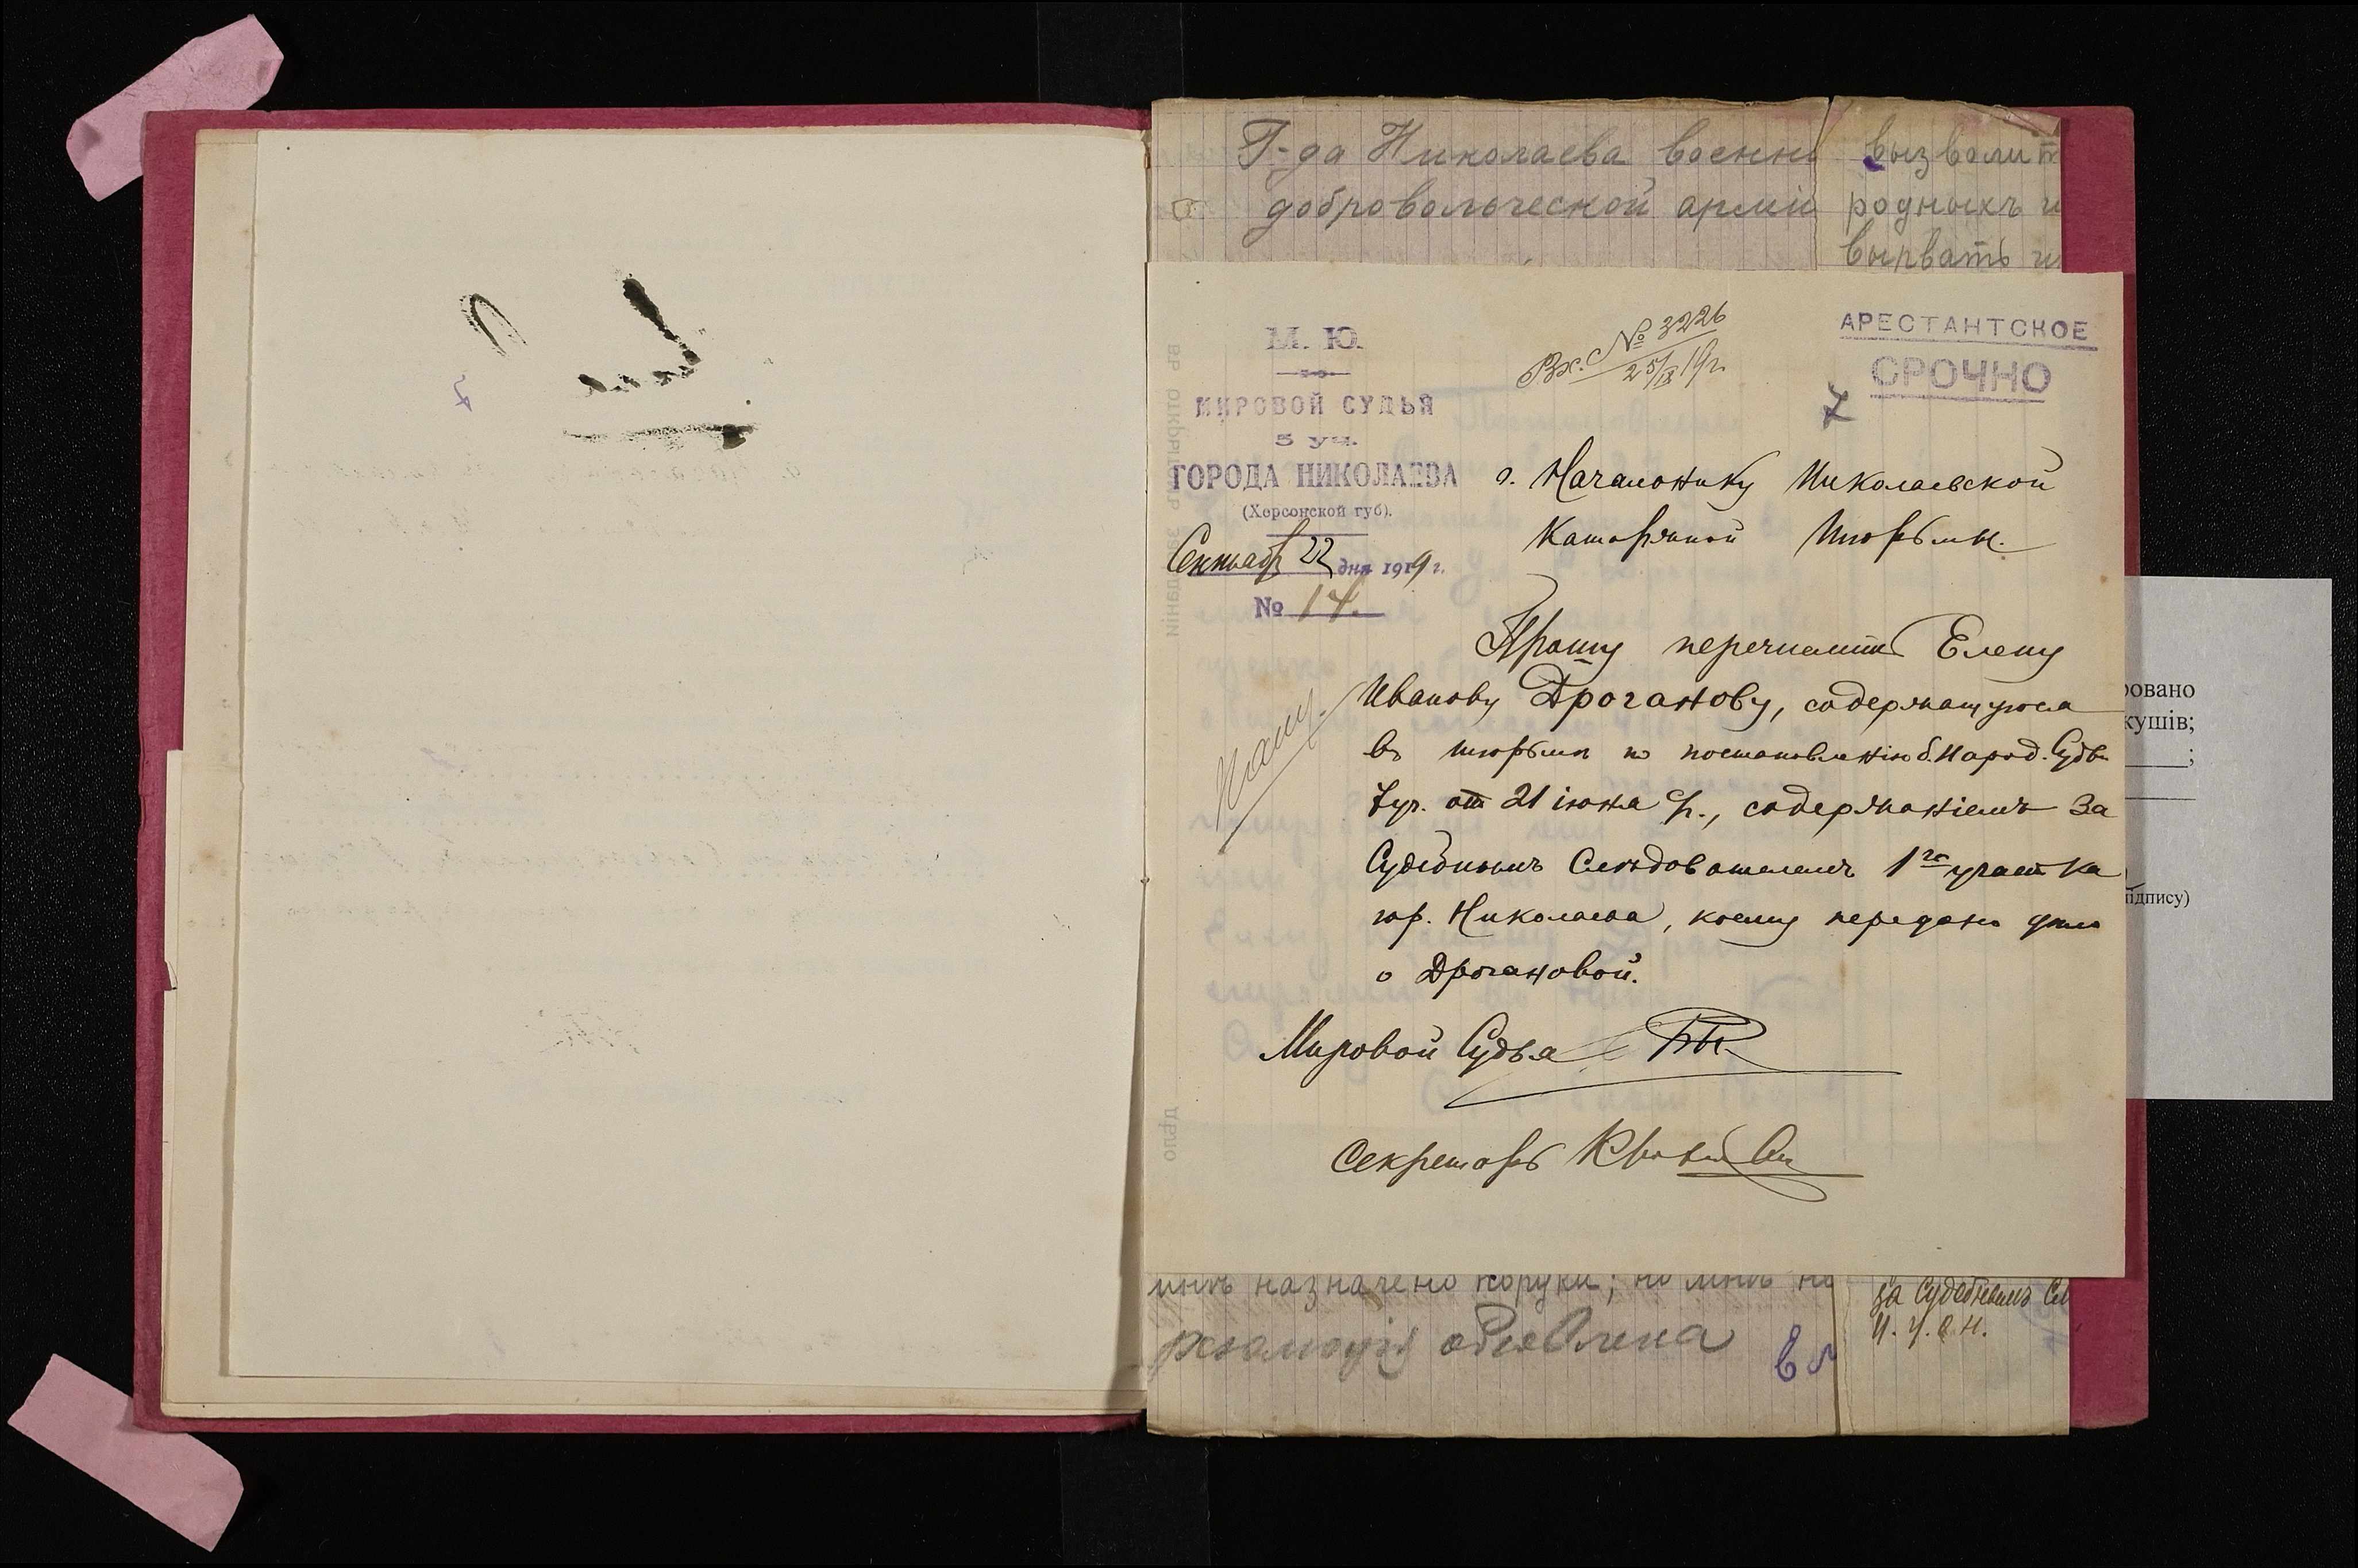 Г-да Николаева военн
добровольческой арміи
вызволит
родныхъ и
вырвать и
М. Ю.
МИРОВОЙ СУДЬЯ
5 уч.
ГОРОДА НИКОЛАЕВА
(Херсонской губ).
Сентября 22 дня 1919 г.
№ 14.
Вх. № 3226
25/IX 19 г.
АРЕСТАНТСКОЕ
СРОЧНО
7
г. Начальнику Николаевской
Каторжной Тюрьмы.
Прошу перечислить Елену
Иванову Дроганову, содержащуюся
въ тюрьмѣ по постановленію б. Народ. Судьи
7 уч. отъ 21 іюня с/г., содержаніемъ за
Судебнымъ Слѣдователемъ 1го участка
гор. Николаева, коему передано дѣло
о Дрогановой.
Мировой Судья
Секретарь
мнѣ назначено поруки; но мнѣ не
резолюція объявлена
за Судебнымъ Сл
овано
кушів;
;
ідпису)